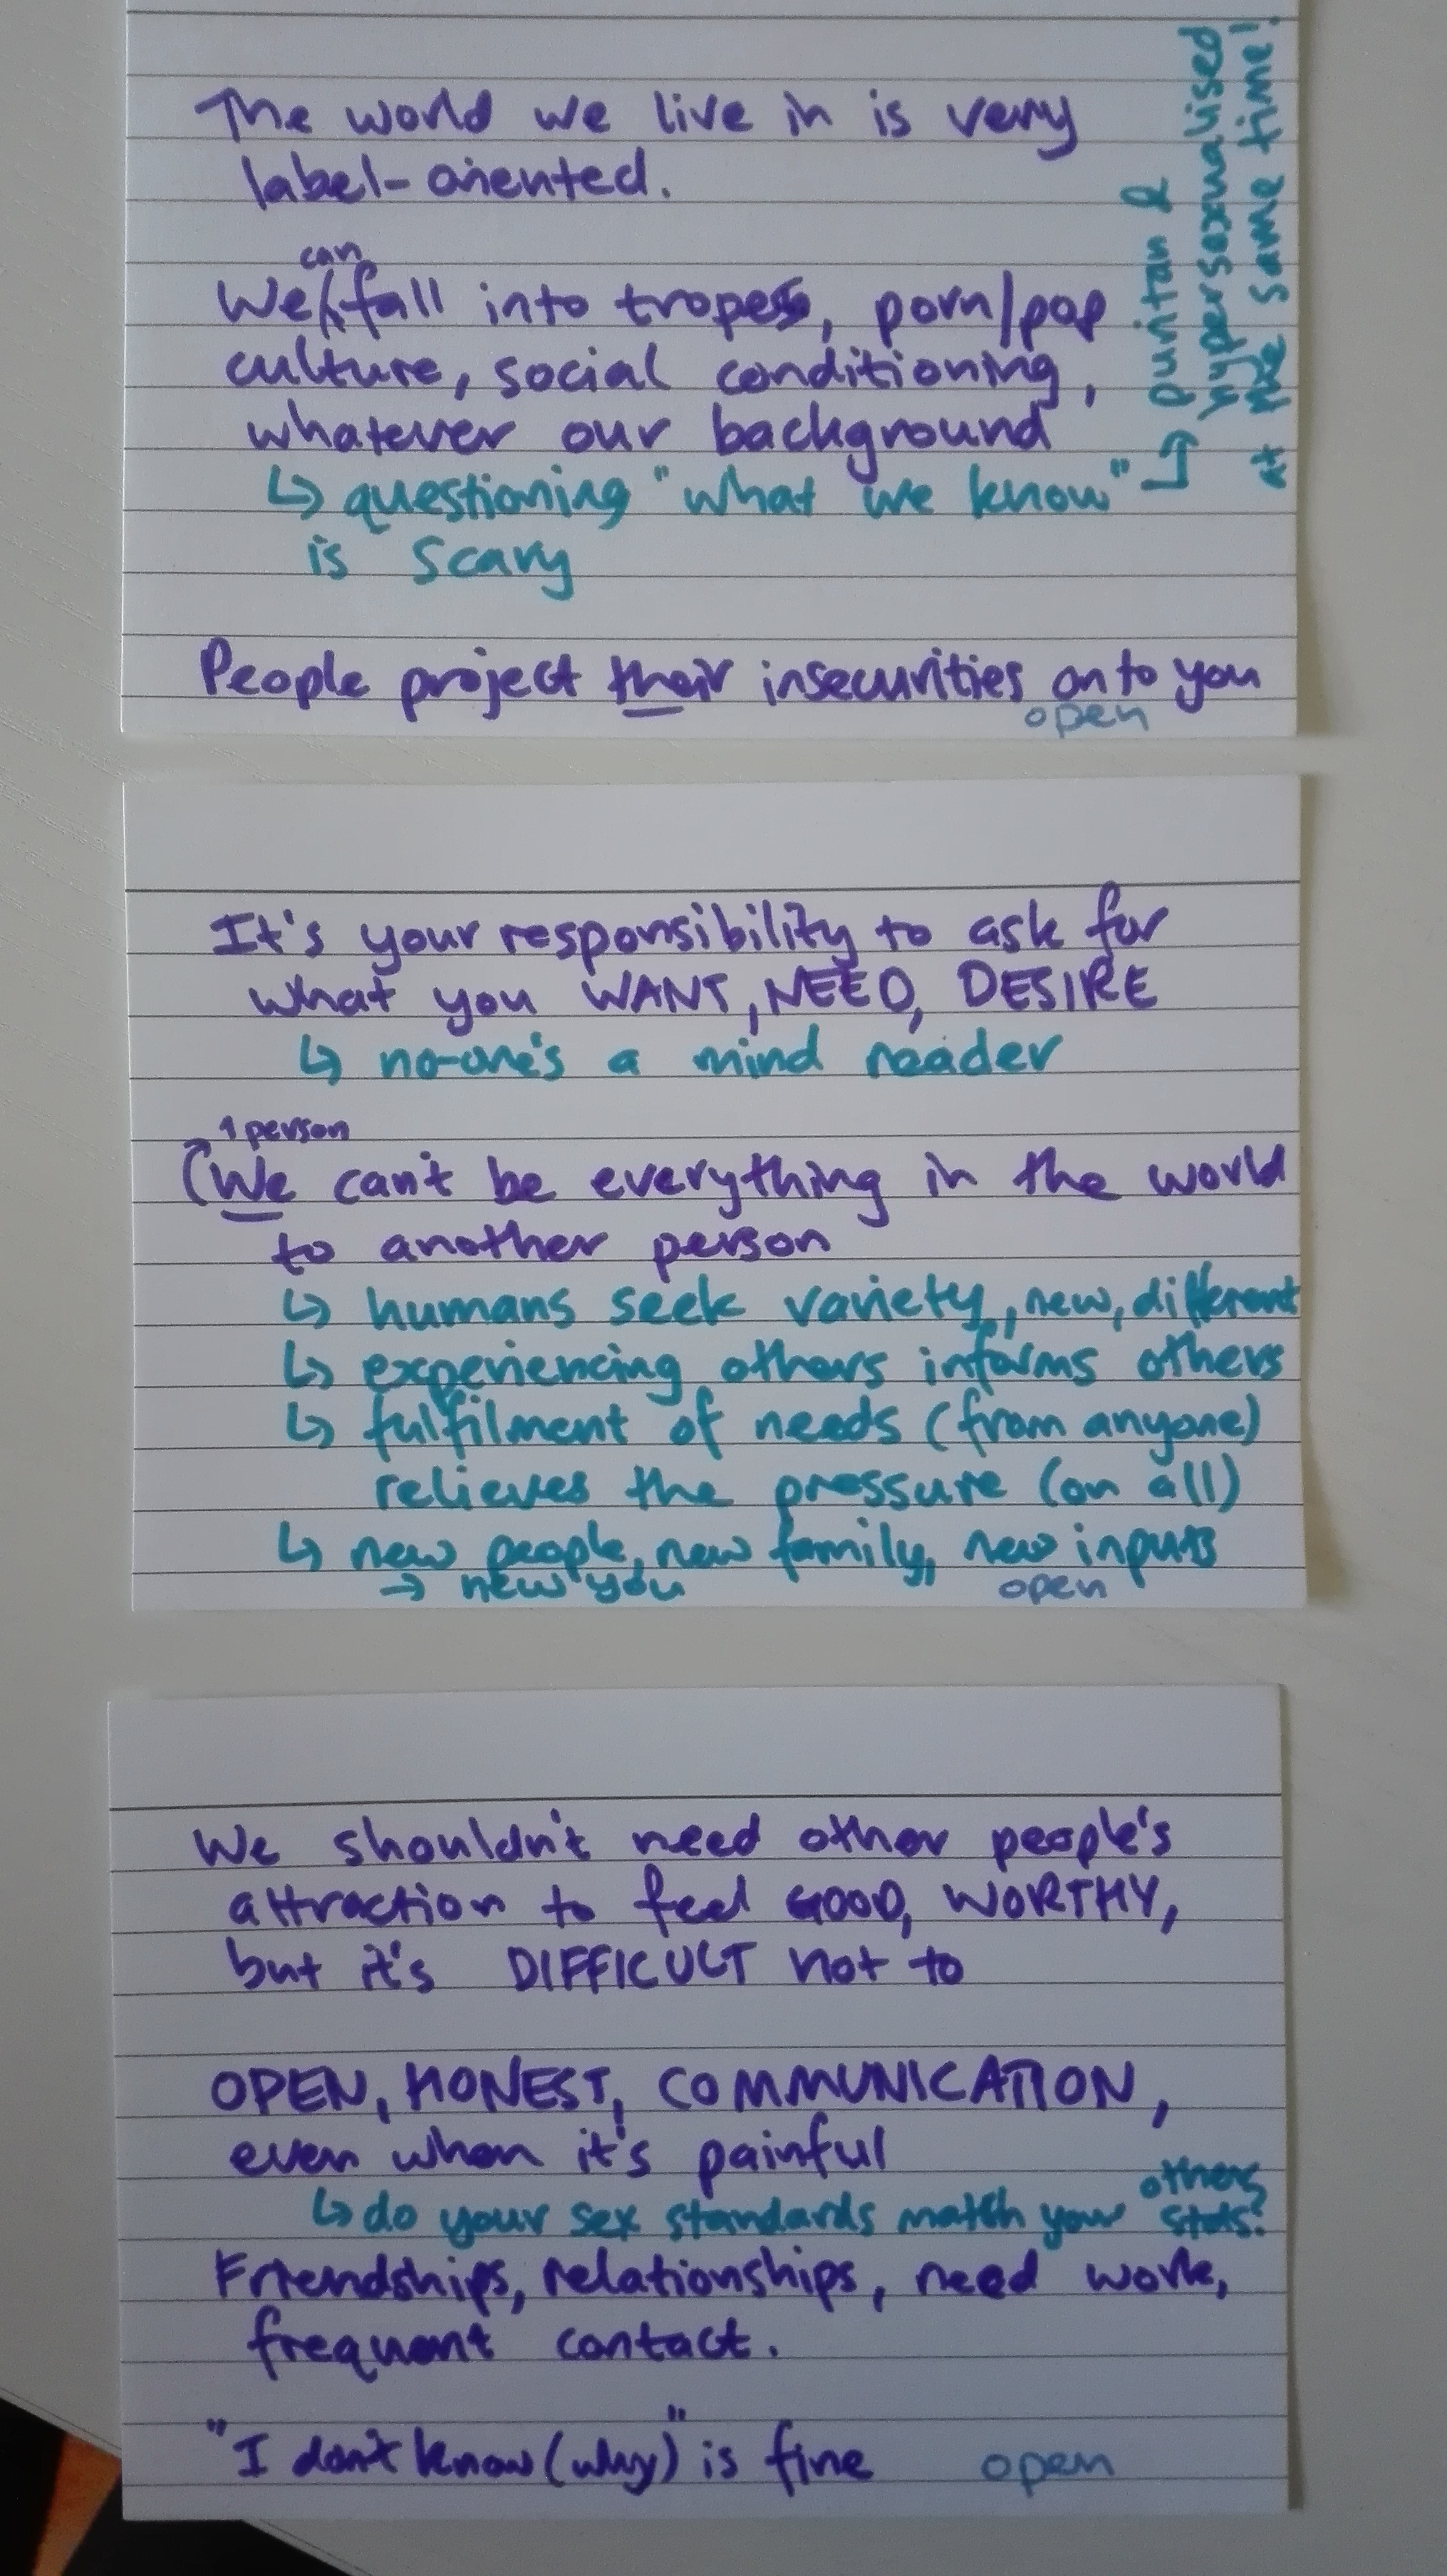 The world we live in is very
label-oriented.
can
We fall into tropes, porn/pop
culture, social conditioning,
whatever our background
↳ questioning "what we know"
is scary
↳ puritan &
hypersexualised
at the same time!
People project their insecurities onto you
open
It's your responsibility to ask for
what you WANT, NEED, DESIRE
↳ no-one's a mind reader
1 person
(We can't be everything in the world
to another person
↳ humans seek variety, new, different
↳ experiencing others informs others
↳ fulfilment of needs (from anyone)
relieves the pressure (on all)
↳ new people, new family, new inputs
→ new you
open
We shouldn't need other people's
attraction to feel GOOD, WORTHY,
but it's DIFFICULT not to
OPEN, HONEST, COMMUNICATION,
even when it's painful
others
↳ do your sex standards match your stds?
Friendships, relationships, need work,
frequent contact.
"I don't know (why)" is fine
open